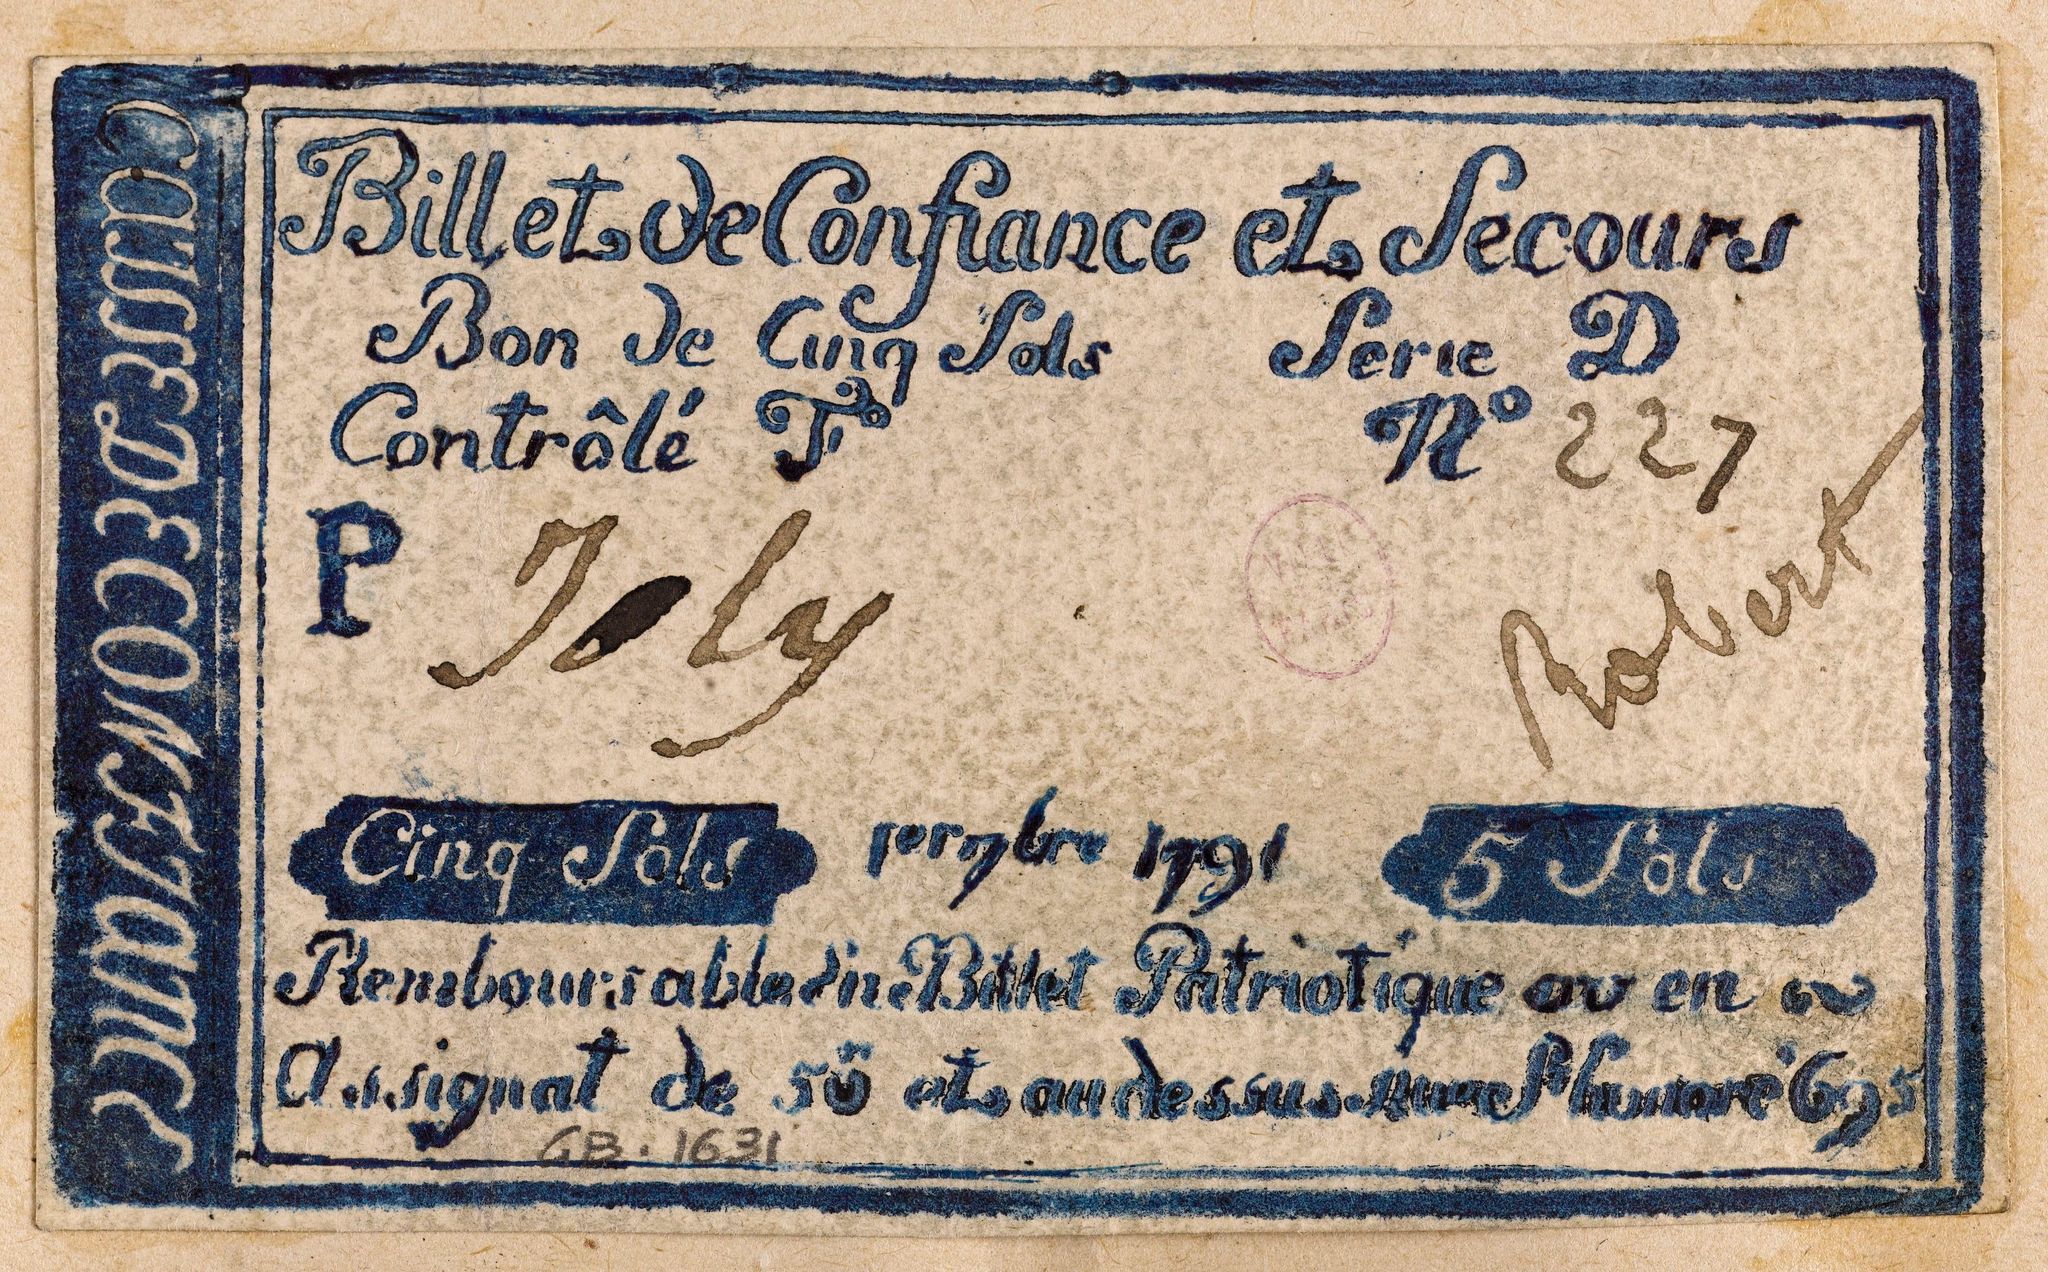 Caisse De CONFIANCE
Billet de Confiance et Secours
Bon de Cinq Sols Serie D
Contrôlé F° N° 227
P Joly Robert
Cinq Sols 1er 7bre 1791 5 Sols
Remboursable en Billet Patriotique ou en
Assignat de 50 et au dessus 695
GB.1631